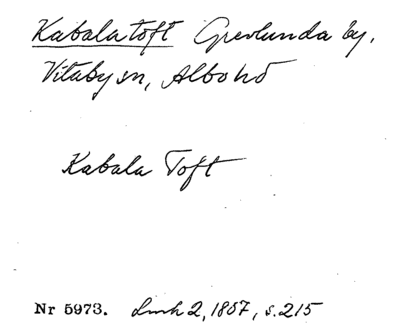 Kabalatoft Grevlunda by,
Vitaby sn, Albo hd
Kabala Toft
Nr 5973. Lmh 2, 1857, s. 215